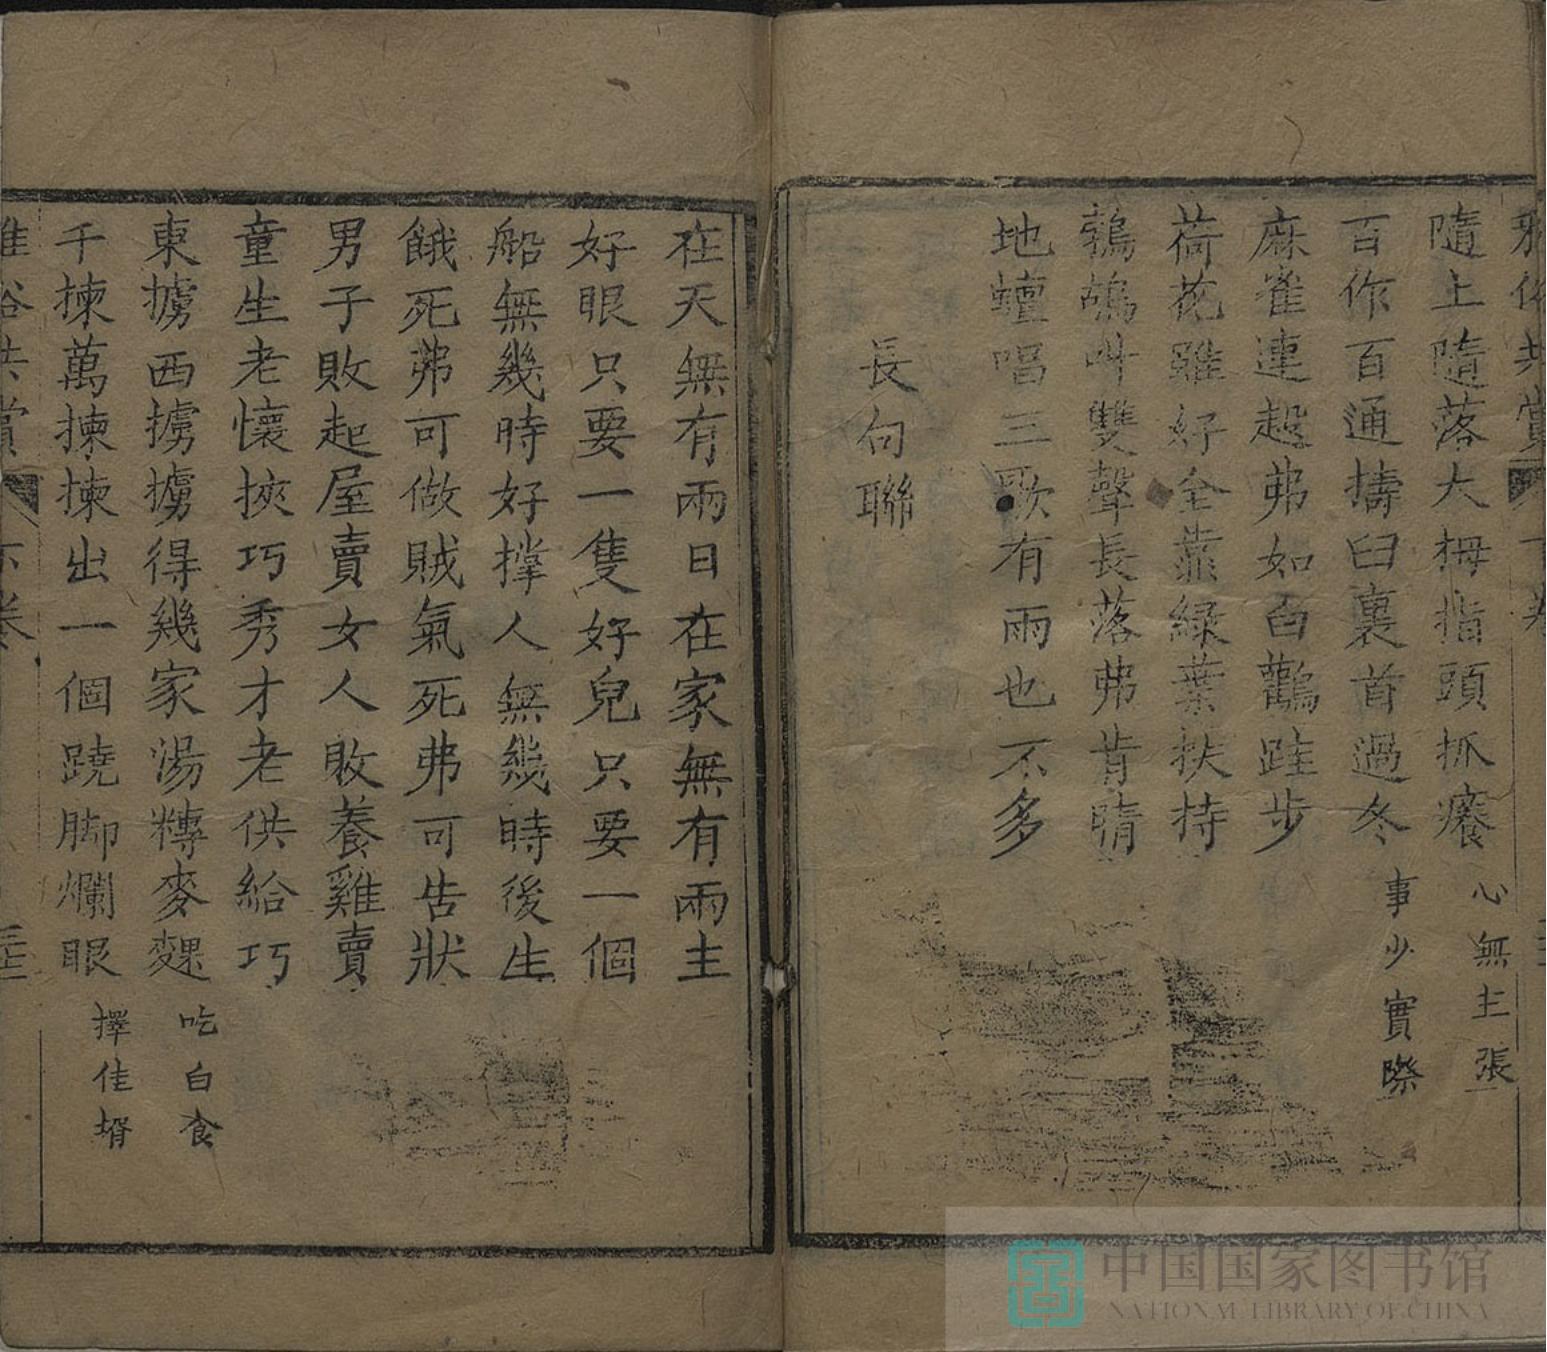 雅俗共賞 下卷
隨上隨落大拇指頭抓癢 心無主張
百作百通擣臼裏首過冬 事少實際
麻雀連趕弗如白鸛跬步
荷花雖好全靠綠葉扶持
鵓鴣叫雙聲長落弗肯晴
地蟮唱三歌有雨也不多
長句聯
在天無有兩日在家無有兩主
好眼只要一隻好兒只要一個
船無幾時好撑人無幾時後生
餓死弗可做賊氣死弗可告狀
男子敗起屋賣女人敗養雞賣
童生老懷挾巧秀才老供給巧
東擄西擄擄得幾家湯糐麥粿 吃白食
千揀萬揀揀出一個蹺脚爛眼 擇佳婿
雅俗共賞 下卷
中国国家图书馆
NATIONAL LIBRARY OF CHINA